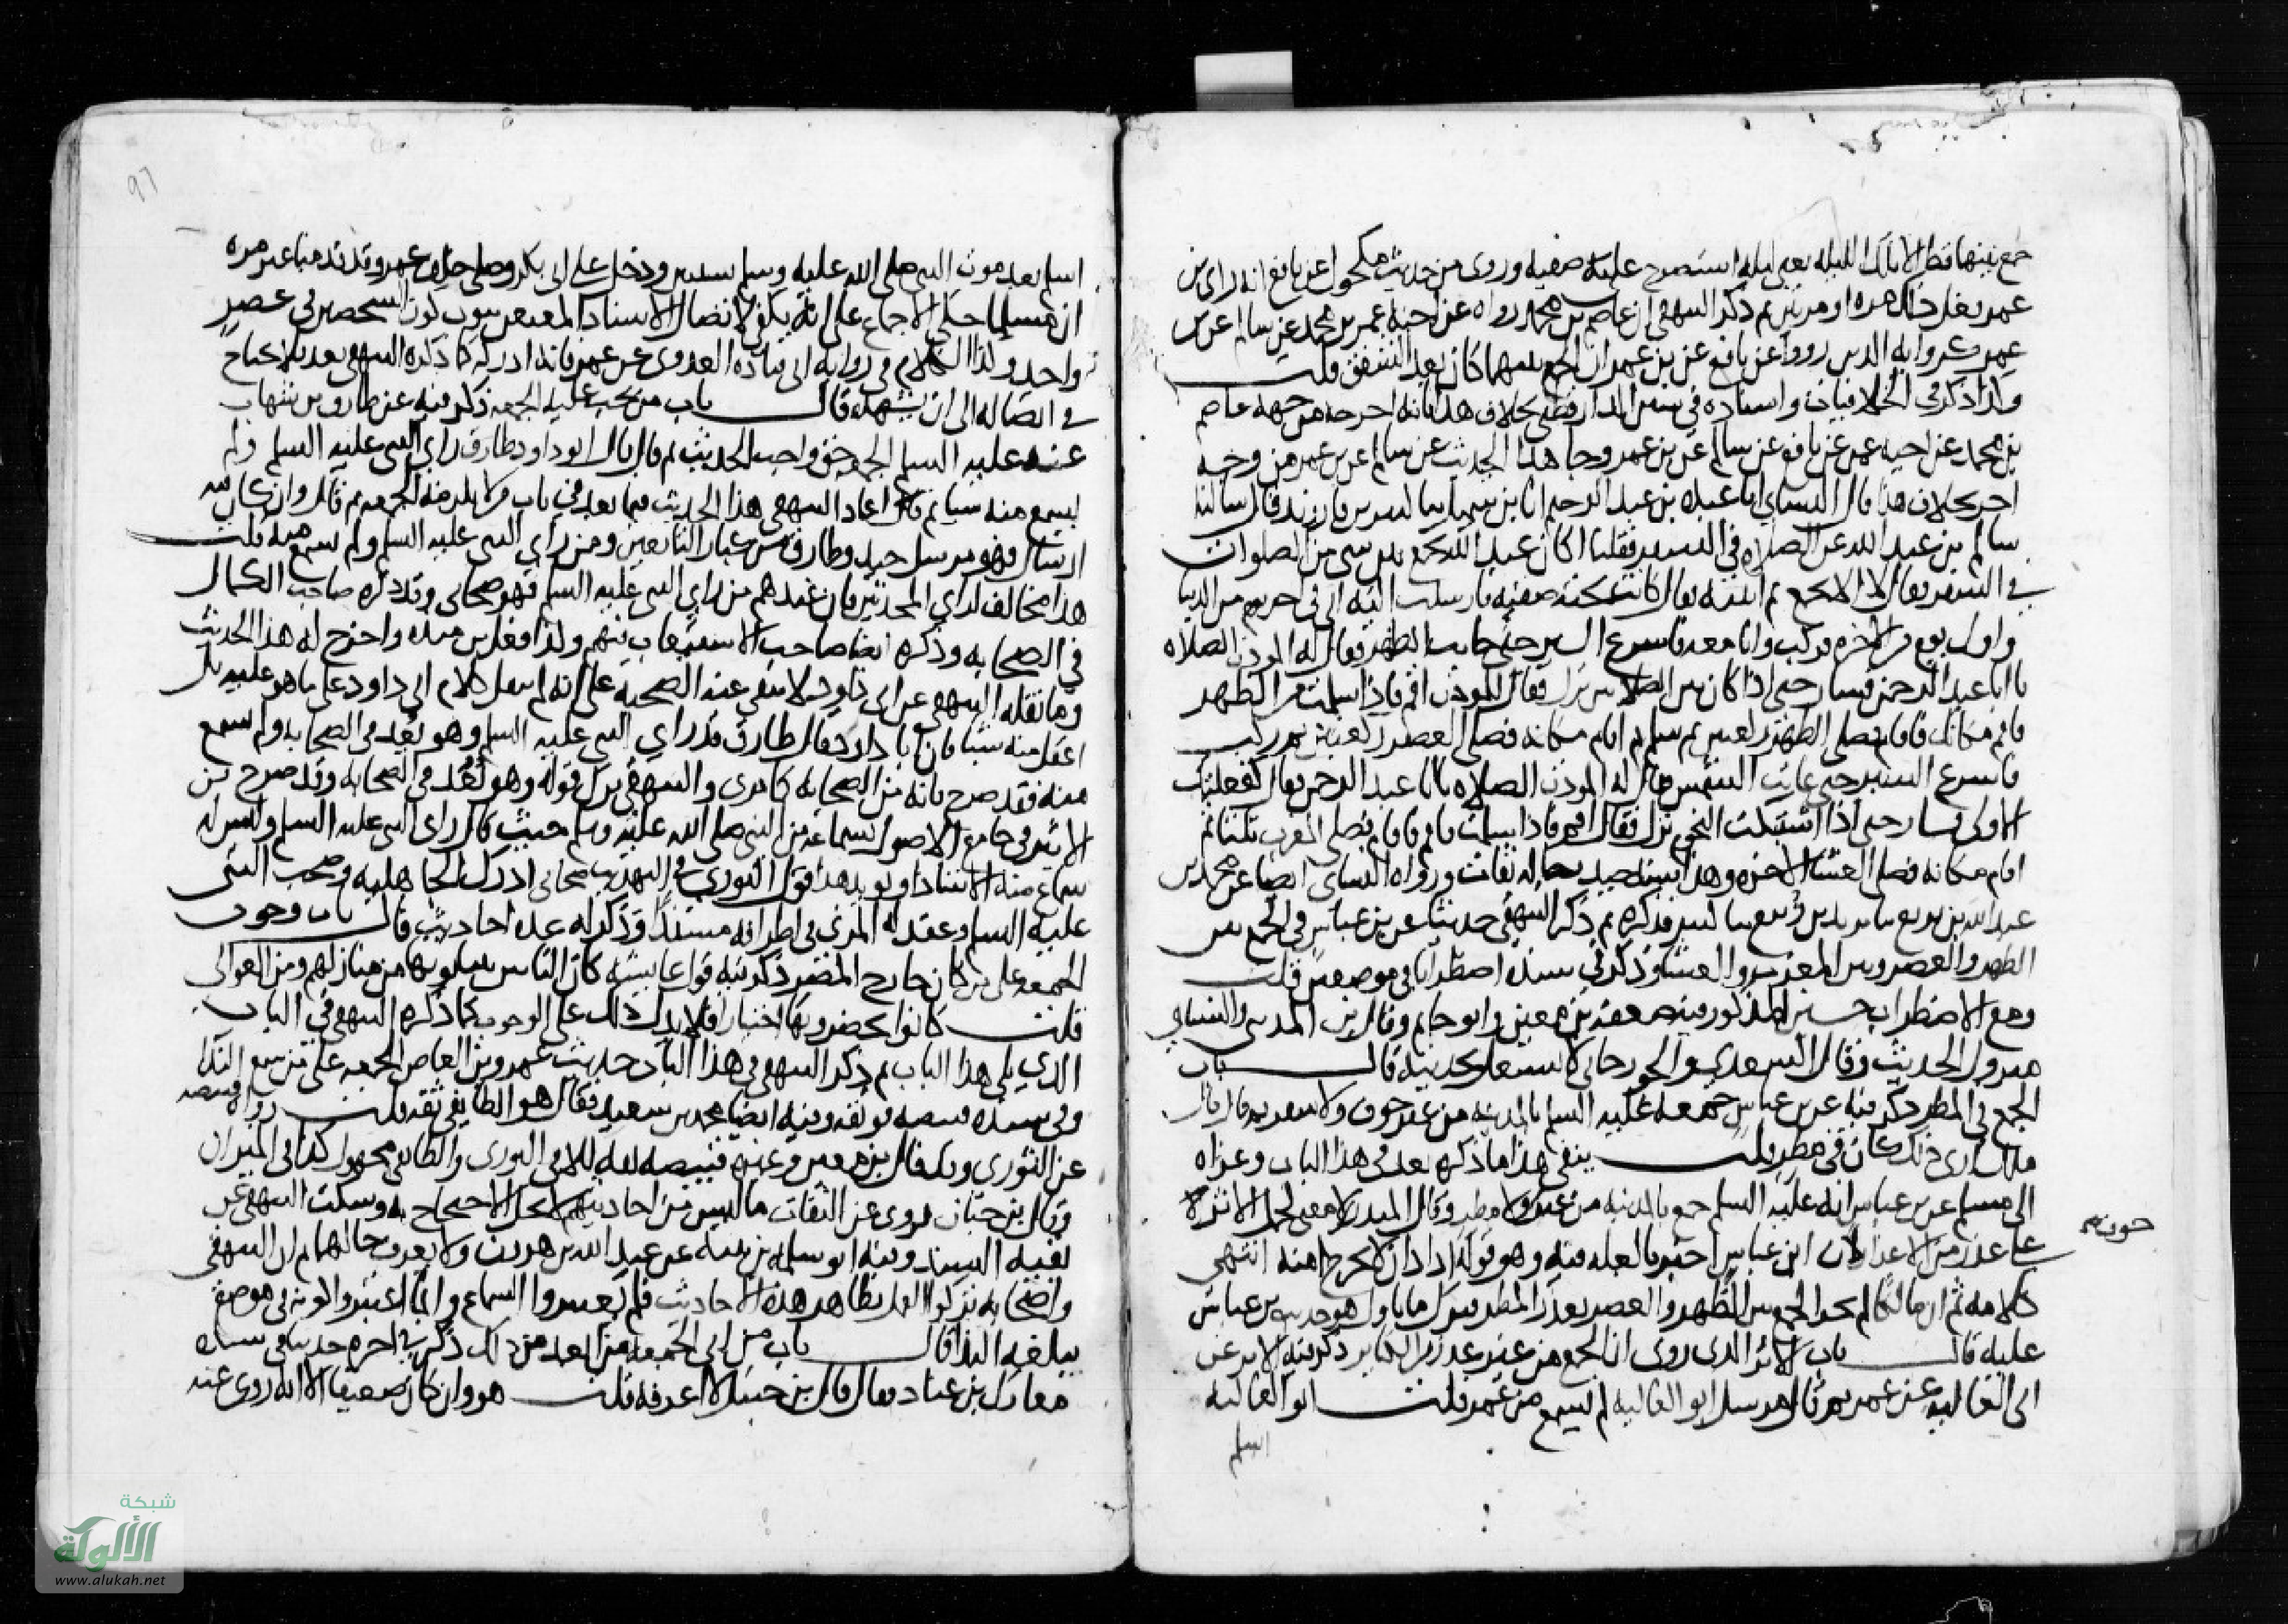 جمع بينهما قط الا تلك الليلة يعني ليلة استصرخ على صفيه وروى من حديث مكحول عن نافع انه راى بن
عمر يفعل ذلك مره او مرتين ثم ذكر البيهقى ان عاصم بن محمد رواه عن اخيه عمر بن محمد عن سالم عن بن
عمر كروايه الذين رووا عن نافع عن بن عمر ان الجمع بينهما كان بعد الشفق قلت
وكذا ذكر في الخلافيات واسناده في سنن الدارقطنى بخلاف هذا فانه اخرجه من جهه عاصم
بن محمد عن اخيه عمر عن نافع عن سالم عن بن عمر وجا هذا الحديث عن سالم عن بن عمر من وجه
اخر بخلاف هذا قال النساي انا عبده بن عبد الرحيم انا بن شميل ثنا كثير بن قاروندا قال سالنا
سالم بن عبد الله عن الصلاه في السفر فقلنا اكان عبد الله يجمع بين شي من الصلوات
في السفر فقال لا الا بجمع ثم اتيته فقال كانت عنده صفيه فارسلت اليه انى في اخر يوم من الدنيا
واول يوم من الاخره فركب وانا معه فاسرع السير حتى حانت الظهر فقال له الموذن الصلاه
يا ابا عبد الرحمن فسار حتى اذا كان بين الصلاتين نزل فقال للموذن اقم فاذا سلمت من الظهر
فاقم مكانك فاقام فصلى الظهر ركعتين ثم سلم ثم اقام مكانه فصلى العصر ركعتين ثم ركب
فاسرع السير حتى غابت الشمس فقال له الموذن الصلاه يا ابا عبد الرحمن فقال كفعلك
الاولى فسار حتى اذا اشتبكت النجوم نزل فقال اقم فاذا سلمت فاقم فاقام فصلى المغرب ثلثا ثم
اقام مكانه فصلى العشا الاخره وهذا سند جيد رجاله ثقات ورواه النساى ايضا عن محمد بن
عبد الله بن بزيع ثنا يزيد بن زريع ثنا كثير فذكره ثم ذكر البيهقى حديثا عن بن عباس في الجمع بين
الظهر والعصر وبين المغرب والعشا وذكر في سنده اضطرابا في موضعين قلت
ومع الاضطراب حسين المذكور فيه ضعفه بن معين وابو حاتم وقال بن المدينى والنساي
متروك الحديث وقال السعدي الجوزجانى لا يشتغل بحديثه قال باب
الجمع في المطر ذكر فيه عن بن عباس جمعه عليه السلم بالمدينه من غير خوف ولا سفر ثم قال قال
ملك ارى ذلك كان في مطر قلت ينفى هذا ما ذكره بعد في هذا الباب وعزاه
الى مسلم عن بن عباس انه عليه السلم جمع بالمدينه من غير خوف ولا مطر وقال بن المنذر لا معنى لحمل الاثر
على عذر من الاعذار لان ابن عباس اخبر بالعله فيه وهو قوله اراد ان لا يحرج امته انتهى
كلامه ثم ان مالكا لم يجوز الجمع بين الظهر والعصر بعذر المطر فترك ما تاول هو حديث بن عباس
عليه قال باب الاثر الذى روى ان الجمع من غير عذر من الكباير ذكر فيه الاثر عن
ابى العاليه عن عمر ثم قال مرسل ابو العاليه لم يسمع من عمر قلت ابو العاليه
اسلم
اسلم بعد موت النبي صلى الله عليه وسلم بسنتين ودخل على ابى بكر وصلى خلف عمر وقد قدمنا غير مره
ان مسلما حكى الاجماع على انه يكفى لاتصال الاسناد المعنعن ثبوت كون الشخصين في عصر
واحد وكذا الكلام في روايه ابى قتاده العدوى عن عمر فانه ادركه كما ذكره البيهقى بعد فلا يحتاج
في اتصاله الى ان يشهده قال باب من تجب عليه الجمعه ذكر فيه عن طارق بن شهاب
عنه عليه السلم الجمعه حق واجب الحديث ثم قال قال ابو داود طارق راى النبى عليه السلم ولم
يسمع منه شيا ثم اعاد البيهقى هذا الحديث فيما بعد في باب من لا تلزمه الجمعه ثم قال وان كان فيه
ارسال فهو مرسل جيد وطارق من كبار التابعين وممن راى النبى عليه السلم ولم يسمع منه قلت
هذا مخالف لراي المحدثين فان عندهم من راي النبى عليه السلم فهو صحابى وقد ذكره صاحب الكمال
في الصحابه وذكره ايضا صاحب الاستيعاب فيهم وكذا فعل بن منده واخرج له هذا الحديث
وما نقله البيهقى عن ابى داود لا ينفى عنه الصحبة على انه لم ينقل كلام ابى داود على ما هو عليه بل
اغفل منه شيا فان ابا داود قال طارق قد راي النبى عليه السلم وهو يعد في الصحابه ولم يسمع
منه فقد صرح بانه من الصحابه كما ترى والبيهقى ترك قوله وهو يعد في الصحابه وقد صرح بن
الاثير في جامع الاصول بسماعه من النبى صلى الله عليه وسلم حيث قال راى النبى عليه السلم وليس له
سماع منه الا شاذا ويويد هذا قول النووي في التهذيب صحابى ادرك الجاهليه وصحب النبى
عليه السلم وعقد له المزى في اطرافه مسندا وذكر له عده احاديث قال باب وجوب
الجمعه على من كان خارج المصر ذكر فيه قول عايشه كان الناس ينتابونها من منازلهم ومن العوالى
قلت كانوا يحضرونها اختيارا فلا يدل ذلك على الوجوب كما ذكره البيهقى في الباب
الذي يلى هذا الباب ثم ذكر البيهقى في هذا الباب حديث عمرو بن العاص الجمعه على من سمع الندا
وفى سنده قبيصه فوثقه وفيه ايضا محمد بن سعيد فقال هو الطايفى ثقه قلت رواه قبيصه
عن الثورى وقد قال بن معين وغيره قبيصه ثقه الا في الثورى والطايفى مجهول كذا في الميزان
وقال بن حبان يروى عن الثقات ما ليس من احاديثهم لا يحل الاحتجاج به وسكت البيهقى عن
بقيه السند وفيه ابو سلمه بن نبيه عن عبد الله بن هرون ولا يعرف حالهما ثم ان البيهقى
واصحابه تركوا العمل بظاهر هذه الاحاديث فلم يعتبروا السماع وانما اعتبروا كونه في موضع
يبلغه الندا قال باب من اتى الجمعه من ابعد من ذلك ذكر في اخره حديثا في سنده
معارك بن عباد فقال قال بن حنبل لا اعرفه قلت هو وان كان ضعيفا الا انه روى عنه
شبكة
الألوكة
www.alukah.net